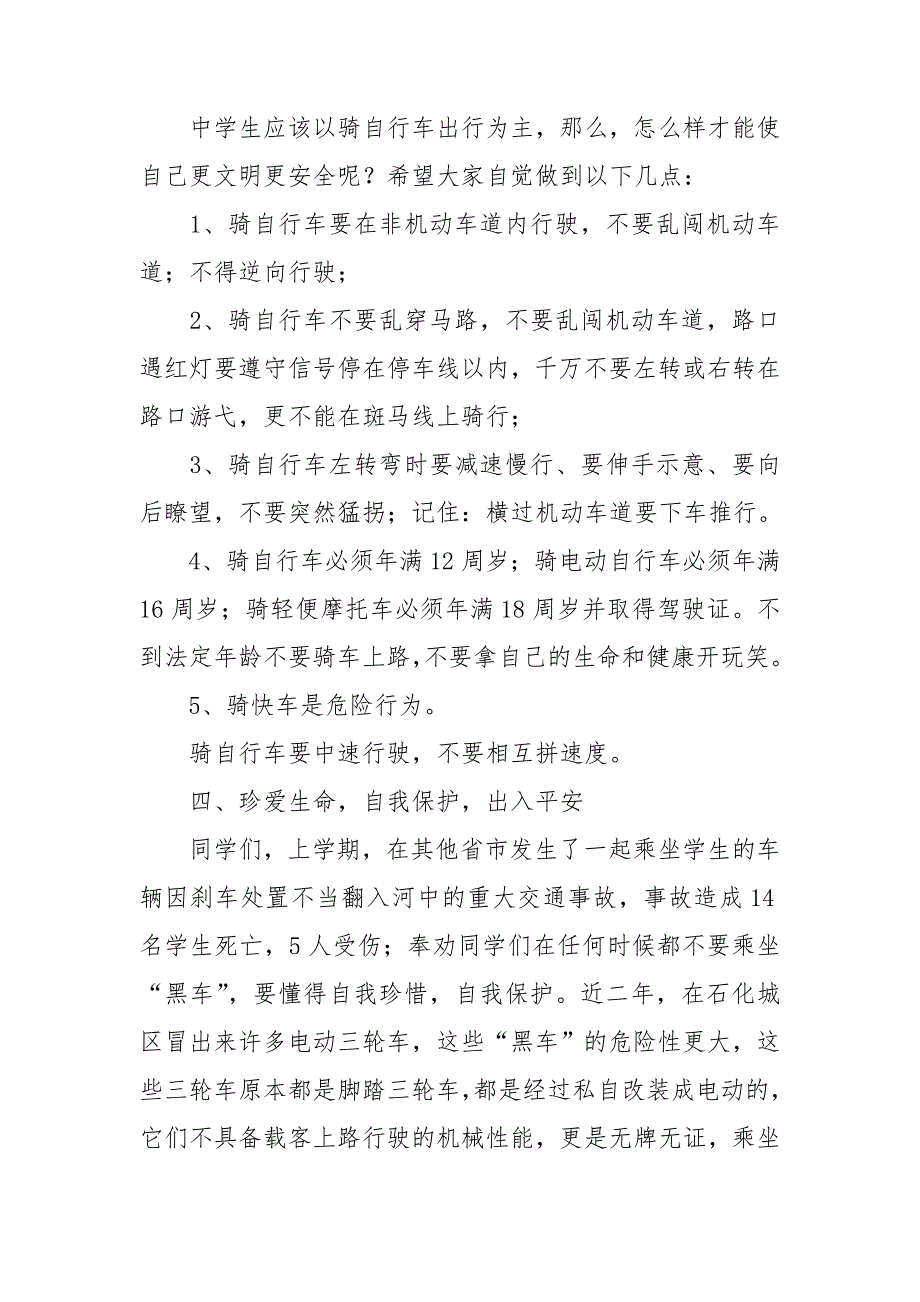 中学生应该以骑自行车出行为主，那么，怎么样才能使
自己更文明更安全呢？希望大家自觉做到以下几点：
1、骑自行车要在非机动车道内行驶，不要乱闯机动车
道；不得逆向行驶；
2、骑自行车不要乱穿马路，不要乱闯机动车道，路口
遇红灯要遵守信号停在停车线以内，千万不要左转或右转在
路口游弋，更不能在斑马线上骑行；
3、骑自行车左转弯时要减速慢行、要伸手示意、要向
后瞭望，不要突然猛拐；记住：横过机动车道要下车推行。
4、骑自行车必须年满 12 周岁；骑电动自行车必须年满
16 周岁；骑轻便摩托车必须年满 18 周岁并取得驾驶证。不
到法定年龄不要骑车上路，不要拿自己的生命和健康开玩笑。
5、骑快车是危险行为。
骑自行车要中速行驶，不要相互拼速度。
四、珍爱生命，自我保护，出入平安
同学们，上学期，在其他省市发生了一起乘坐学生的车
辆因刹车处置不当翻入河中的重大交通事故，事故造成 14
名学生死亡，5 人受伤；奉劝同学们在任何时候都不要乘坐
“黑车”，要懂得自我珍惜，自我保护。近二年，在石化城
区冒出来许多电动三轮车，这些“黑车”的危险性更大，这
些三轮车原本都是脚踏三轮车，都是经过私自改装成电动的，
它们不具备载客上路行驶的机械性能，更是无牌无证，乘坐